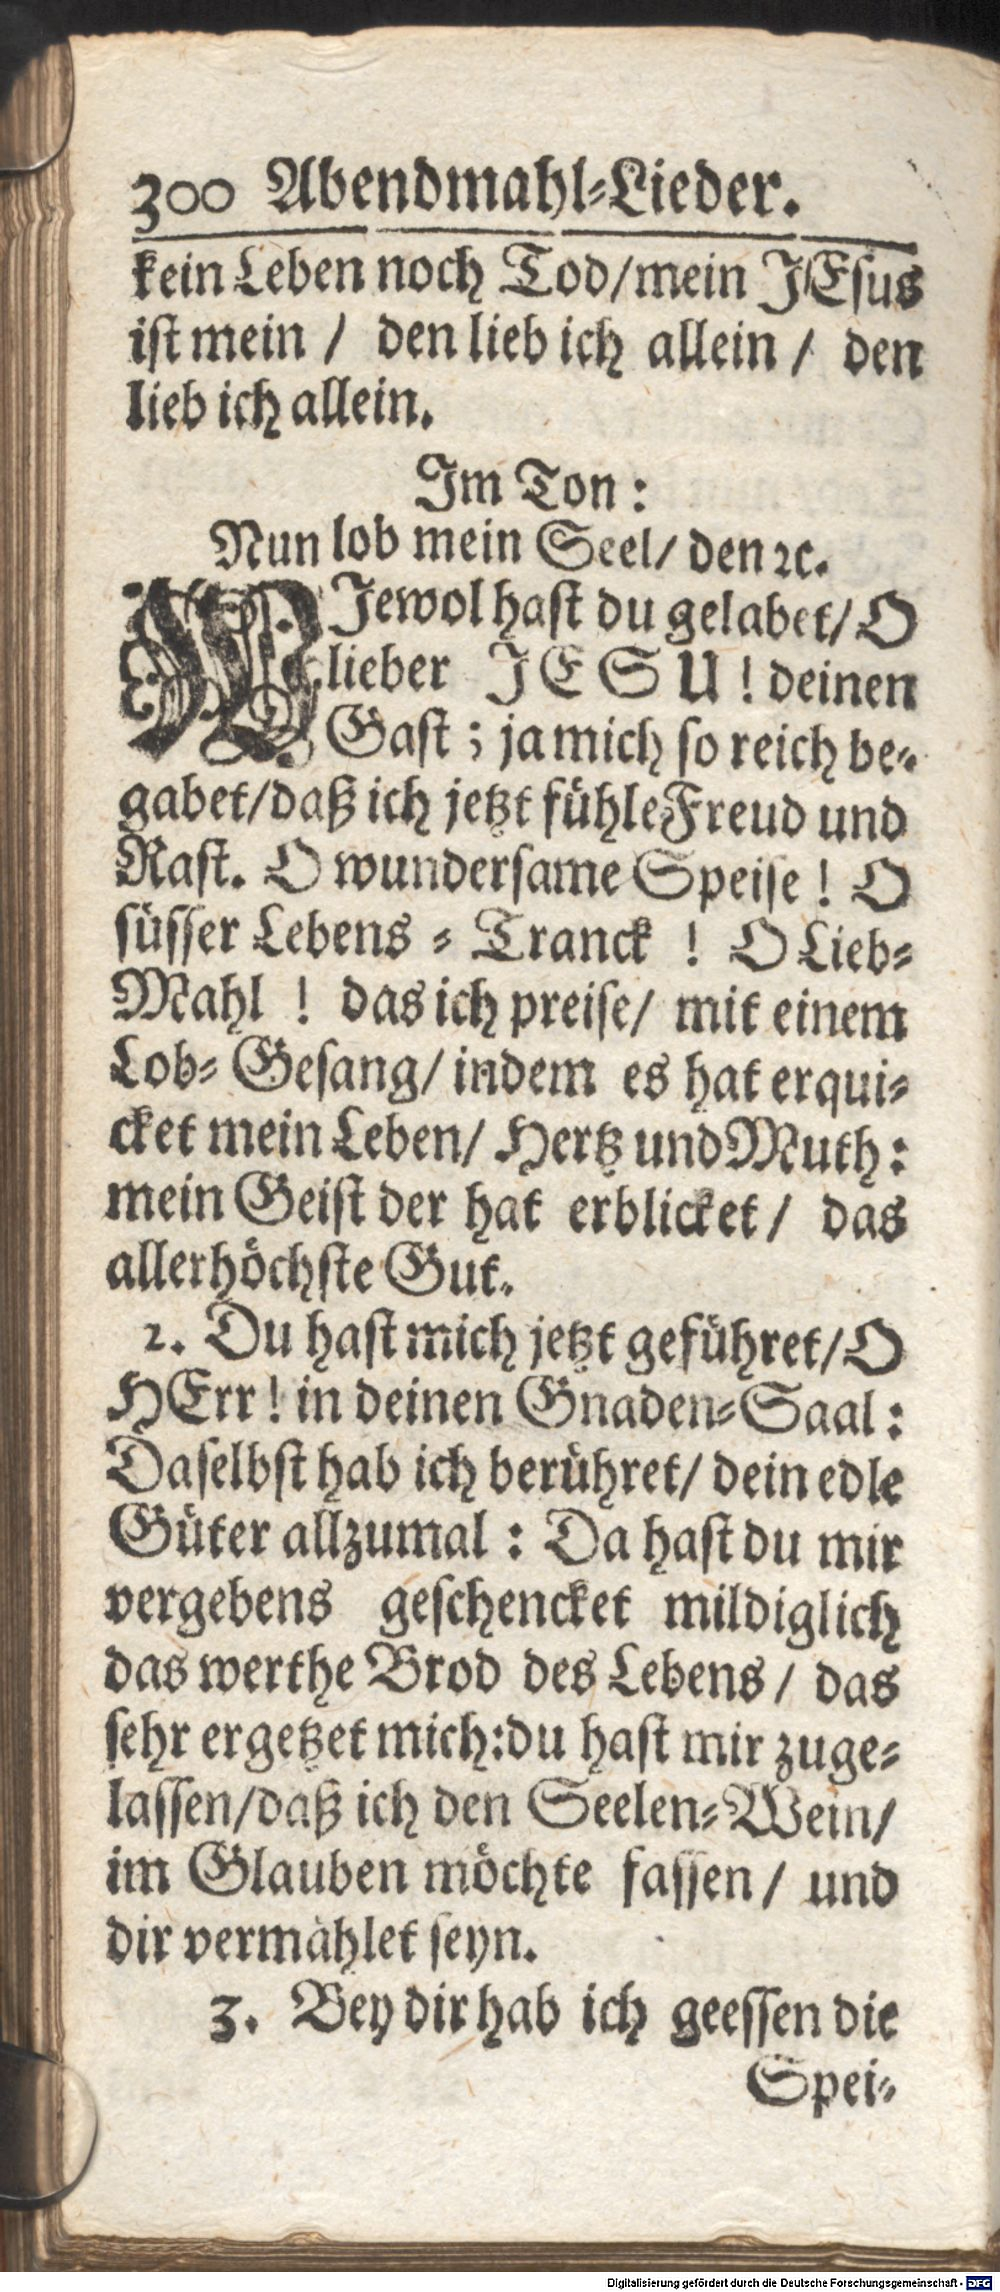 300 Abendmahl-Lieder.
kein Leben noch Tod/mein JEsus
ist mein / den lieb ich allein / den
lieb ich allein.
Im Ton :
Nun lob mein Seel/ den ꝛc.
WJewol hast du gelabet/ O
lieber JESU ! deinen
Gast ; ja mich so reich be-
gabet/daß ich jetzt fühle Freud und
Rast. O wundersame Speise ! O
süsser Lebens - Tranck ! O Lieb-
Mahl ! das ich preise/ mit einem
Lob- Gesang/ indem es hat erqui-
cket mein Leben/ Hertz und Muth :
mein Geist der hat erblicket / das
allerhöchste Gut.
2. Du hast mich jetzt geführet/ O
HErr ! in deinen Gnaden-Saal :
Daselbst hab ich berühret/ dein edle
Güter allzumal : Da hast du mir
vergebens geschencket mildiglich
das werthe Brod des Lebens / das
sehr ergetzet mich: du hast mir zuge-
lassen/daß ich den Seelen-Wein/
im Glauben möchte fassen / und
dir vermählet seyn.
3. Bey dir hab ich geessen die
Spei-
Digitalisierung gefördert durch die Deutsche Forschungsgemeinschaft - DFG